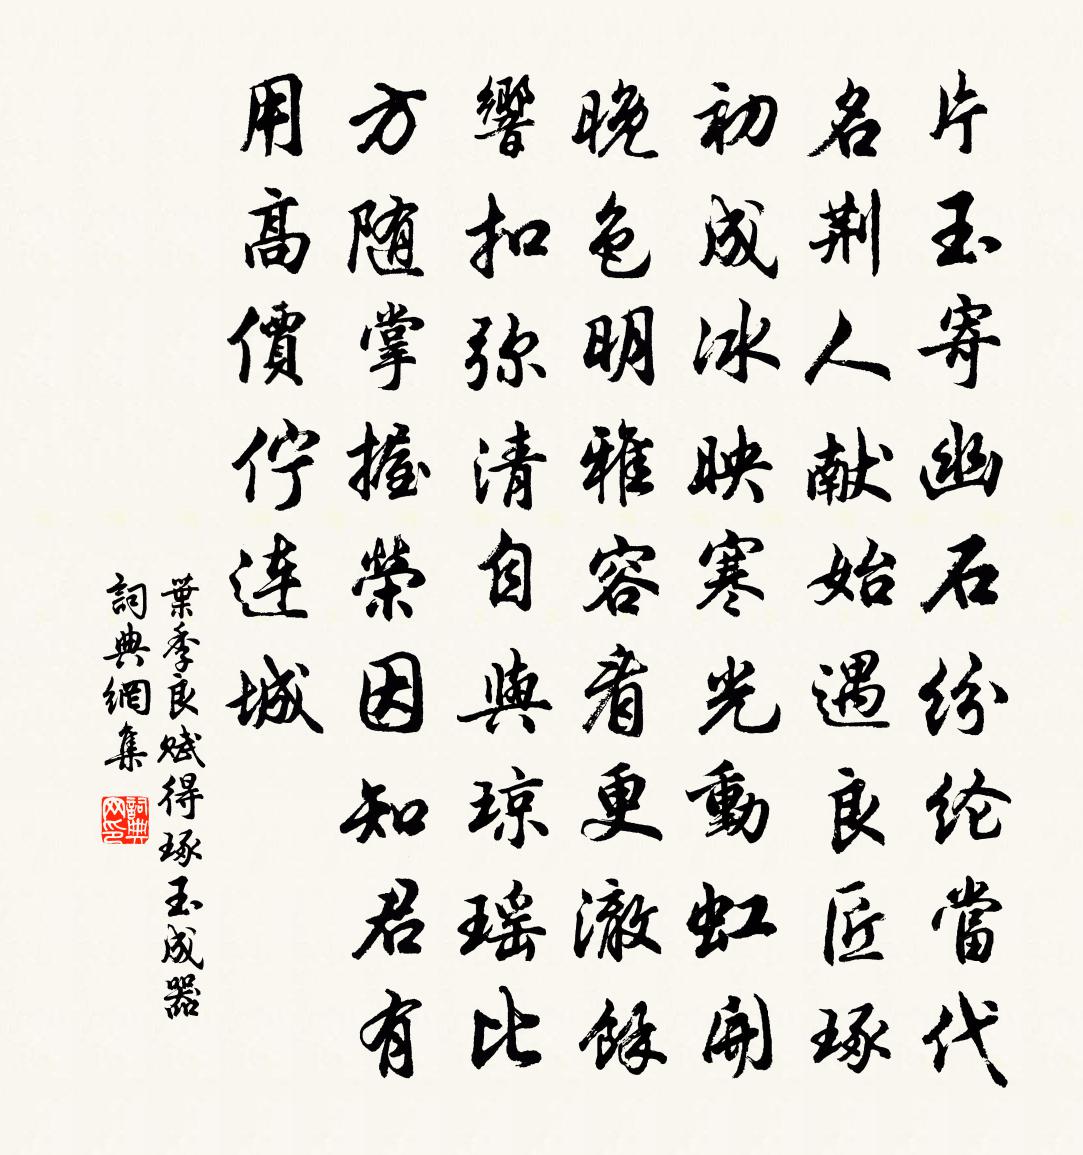 片玉寄幽石纷纶當代
名荆人献始遇良匠琢
初成冰映寒光動虹開
晚色明雅容看更澈餘
響扣弥清自與琼瑶比
方随掌握榮因知君有
用高價佇连城
葉季良赋得琢玉成器
詞典網集
詞典网印